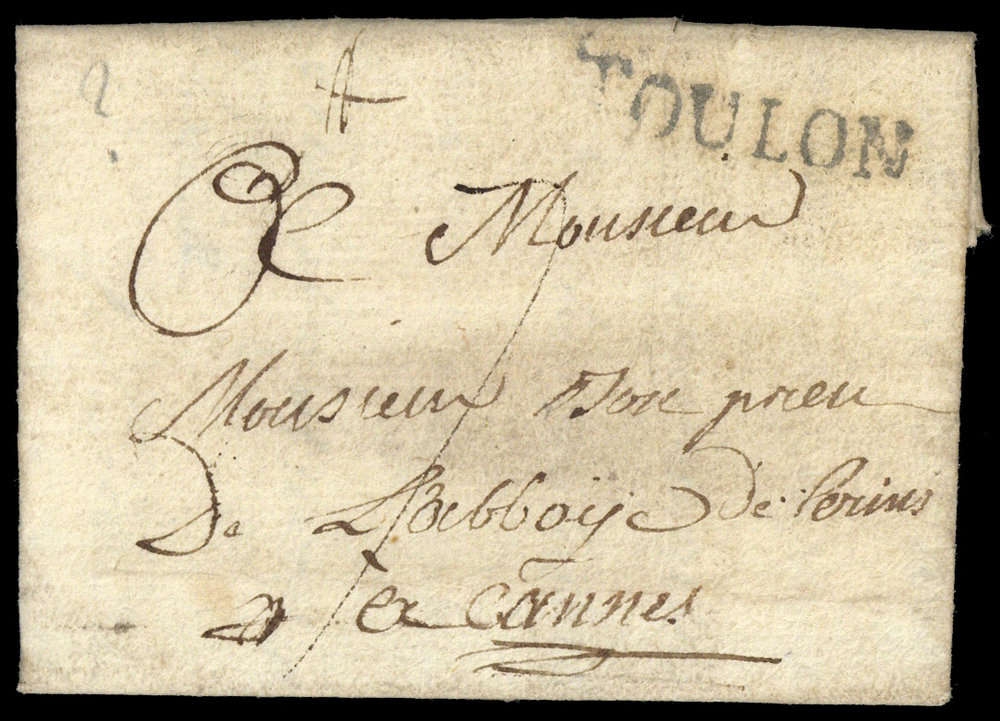 TOULON
A Monsieur
Monsieur Don prieu
De L'abbaÿe de Lerins
a Cannes